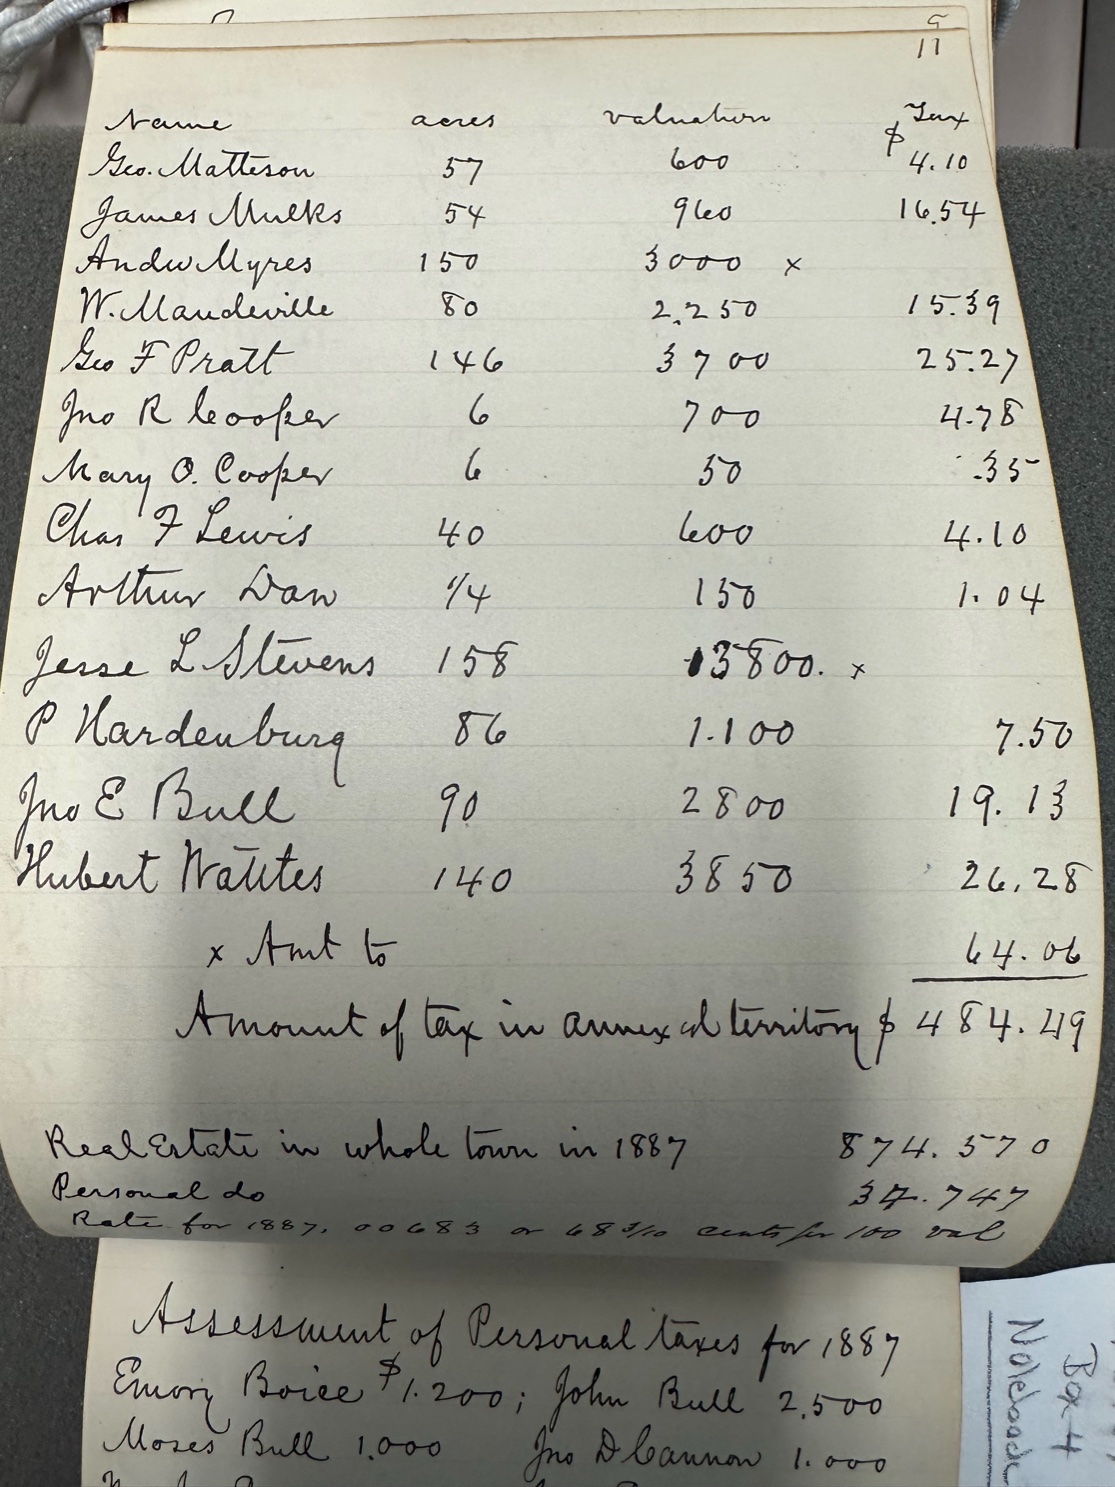 9
11
Name acres valuation Tax
Geo. Matteson 57 600 $ 4.10
James Mulks 54 960 16.54
Andw Myres 150 3000 x
W. Mandeville 80 2,250 15.39
Geo F Pratt 146 3700 25.27
Jno R Cooper 6 700 4.78
Mary O. Cooper 6 50 .35
Chas F Lewis 40 600 4.10
Arthur Daw 1/4 150 1.04
Jesse L Stevens 158 3800. x
P Hardenburg 86 1.100 7.50
Jno E Bull 90 2800 19.13
Hubert Wattles 140 3850 26.28
x Amt to 64.06
Amount of tax in annexed territory $ 484.49
Real Estate in whole town in 1887 874.570
Personal do 37.747
Rate for 1887. 00683 or 68 3/10 cents for 100 val
Assessment of Personal taxes for 1887
Emory Boice $1.200; John Bull 2,500
Moses Bull 1.000 Jno D Cannon 1.000
Box 4